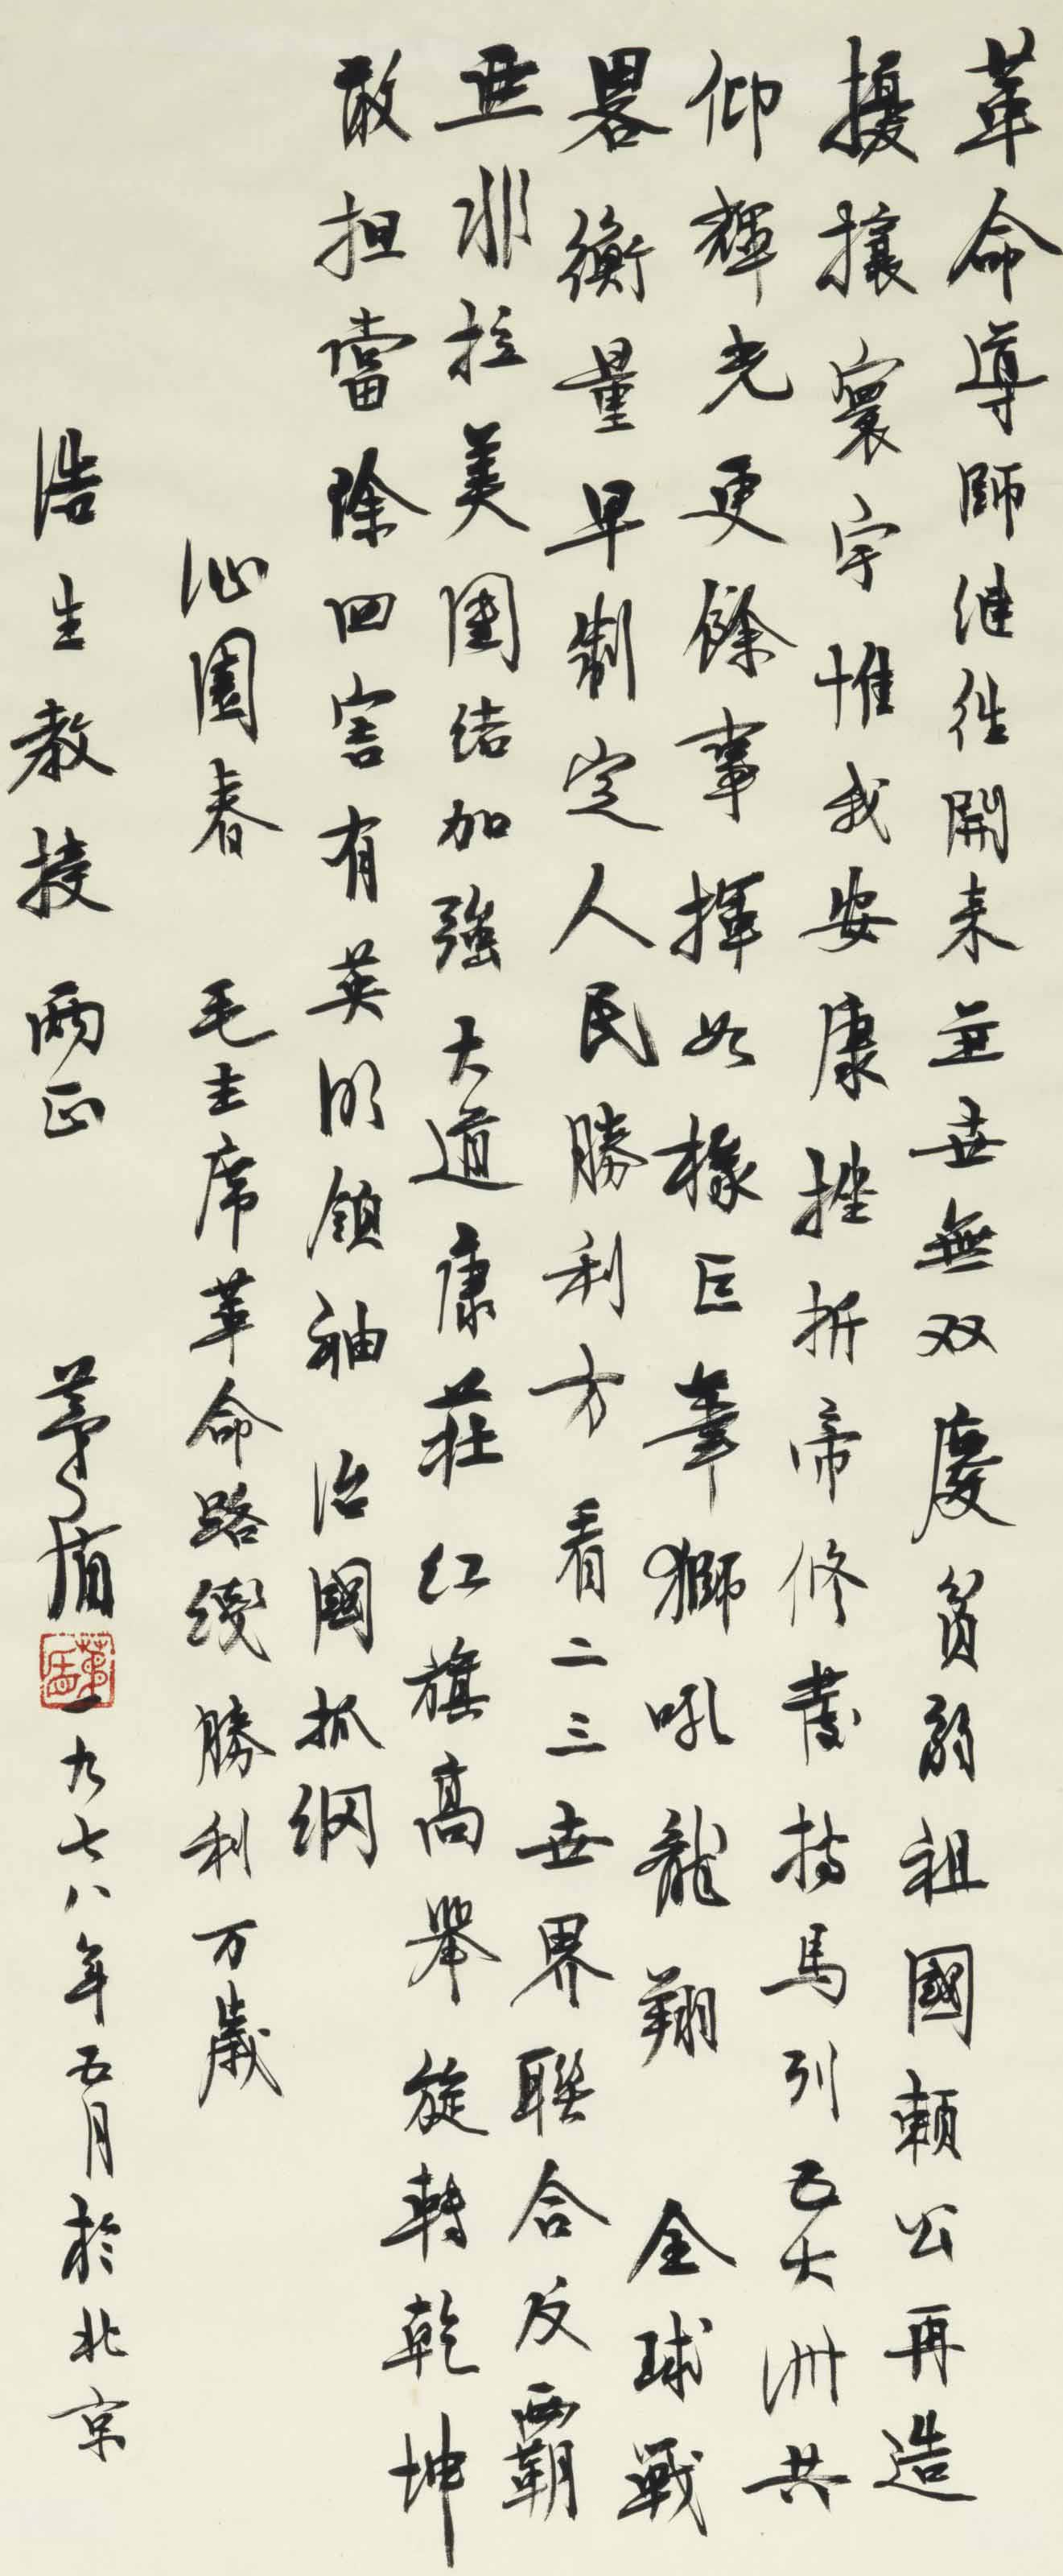 革命導師继往開来並世無双慶貧弱祖國賴公再造
擾攘寰宇惟我安康挫折帝修護持馬列五大洲共
仰輝光更餘事揮如椽巨筆獅吼龍翔 全球戰
畧衡量早制定人民勝利方看二三世界聯合反霸
亜非拉美團结加強大道康莊红旗高舉旋轉乾坤
敢担當除四害有英明領袖治國抓纲
沁園春 毛主席革命路綫勝利万歲
浩生教授兩正 茅盾 一九七八年五月於北京
茅盾